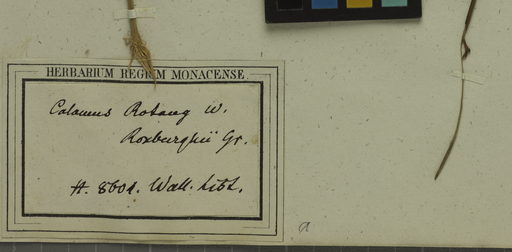 HERBARIUM REGIUM MONACENSE.
Calamus Rotang W.
Roxburghii Gr.
H. 8601. Wall.
a